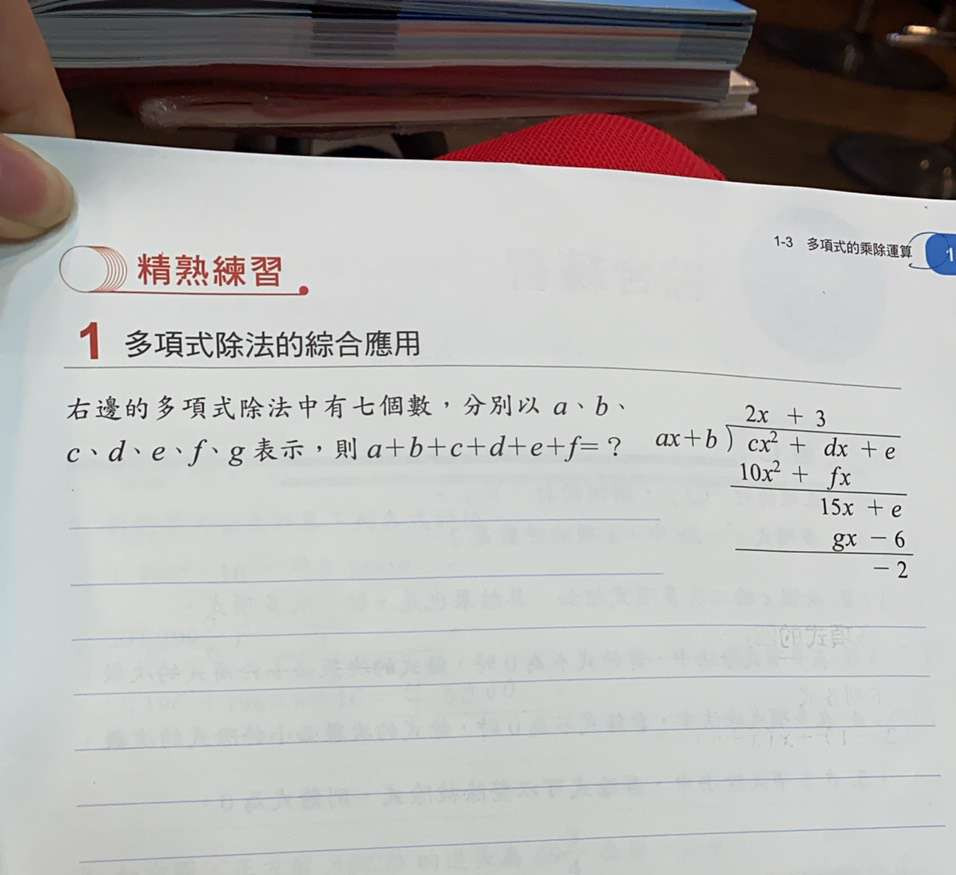 1-3 多項式的乘除運算 1
精熟練習
1 多項式除法的綜合應用
右邊的多項式除法中有七個數，分別以 a、b、
c、d、e、f、g 表示，則 a+b+c+d+e+f= ？
2x + 3
ax+b ) cx² + dx + e
10x² + fx
15x + e
gx − 6
− 2